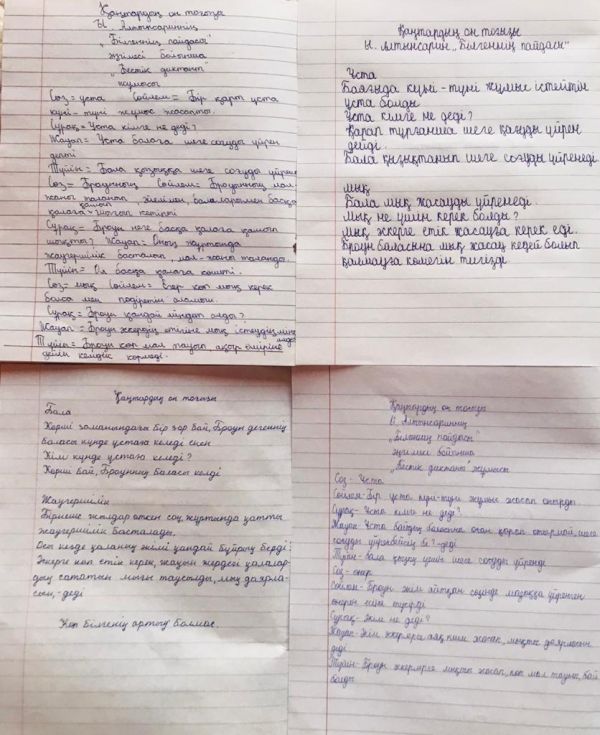 Қаңтардың он тоғызы
Ы. Алтынсариннің
„Білгеннің пайдасы"
әңгімесі бойынша
„Бестік диктант"
жұмысы
Сөз= ұста Сөйлем= Бір қарт ұста
күні-түні жұмыс жасапты.
Сұрақ= Ұста кімге не деді?
Жауап= Ұста балаға шеге соғуды үйрен
депті
Түйін= Бала қызыққа шеге соғуды үйренді
Сөз= Броунның Сөйлем= Броунның мал-
жаны таланып, әйелімен, балаларымен басқа
қалаға қашып шығып кетіпті
Сұрақ= Броун неге басқа қалаға қашып
шықты? Жауап= Оның жұртында
жаугершілік басталып, мал-жаны таланды.
Түйін= Ол басқа қалаға көшті.
Сөз= мық Сөйлем= Егер көп мық керек
болса мен подрәтін аламын.
Сұрақ= Броун қандай міндет алды?
Жауап= Броун әскердің етігіне мық істеудің міндетін алды
Түйін= Броун көп мал тауып, ақыр өміріне
дейін кемдік көрмеді.
Қаңтардың он тоғызы
Ы. Алтынсарин „Білгеннің пайдасы"
Ұста
Баяғыда күні-түні жұмыс істейтін
ұста болды
Ұста кімге не деді?
Қарап тұрғанша шеге қағуды үйрен
дейді.
Бала қызықтанып шеге соғуды үйренеді
Мық
Бала мық жасауды үйренеді.
Мық не үшін керек болды?
Мық әскерге етік жасауға керек еді.
Броун баласына мық жасап кедей болып
қалмауға көмегін тигізді
Қаңтардың он тоғызы
Бала
Көрші заманындағы бір зор бай, Броун дегеннің
баласы күнде ұстаға келеді екен
Кім күнде ұстаға келеді?
Көрші бай, Броунның баласы келді
Жаугершілік
Бірнеше жылдар өткен соң, жұртында қатты
жаугершілік басталады.
Осы кезде қаланың әкімі қандай бұйрық берді?
Әскерге көп етік керек, жақын жердегі қалалар-
дың сататын мығы таусылды, мық даярла-
сын,-деді
Көп білгеннің артығы болмас.
Қаңтардың он тоғызы
Ы Алтынсариннің
„Білгеннің пайдасы"
әңгімесі бойынша
„Бестік диктант жұмысы
Сөз- Ұста
Сөйлем- Бір ұста күні-түні жұмыс жасап отырды.
Сұрақ- Ұста кімге не деді?
Жауап- Ұста байдың баласына оған қарап отырмай, шеге
соғуды үйренбейсің бе?-деді
Түйін- бала қызық үшін шеге соғуды үйренді
Сөз- өнер
Сөйлем- Броун әкім айтқан сөзінде мазаққа үйренген
өнерін есіне түсірді
Сұрақ- Әкім не деді?
Жауап- Әкім әскерлерге аяқ киім жасап, мықты даярласын
деді
Түйін- Броун әскерлерге мықты жасап, көп мал тауып, бай
болды